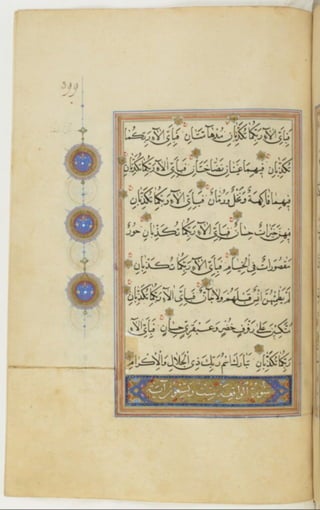 فَبِأَيِّ آلَاءِ رَبِّكُمَا تُكَذِّبَانِ مُدْهَامَّتَانِ فَبِأَيِّ آلَاءِ رَبِّكُمَا
تُكَذِّبَانِ فِيهِمَا عَيْنَانِ نَضَّاخَتَانِ فَبِأَيِّ آلَاءِ رَبِّكُمَا تُكَذِّبَانِ
فِيهِمَا فَاكِهَةٌ وَنَخْلٌ وَرُمَّانٌ فَبِأَيِّ آلَاءِ رَبِّكُمَا تُكَذِّبَانِ
فِيهِنَّ خَيْرَاتٌ حِسَانٌ فَبِأَيِّ آلَاءِ رَبِّكُمَا تُكَذِّبَانِ حُورٌ
مَقْصُورَاتٌ فِي الْخِيَامِ فَبِأَيِّ آلَاءِ رَبِّكُمَا تُكَذِّبَانِ
لَمْ يَطْمِثْهُنَّ إِنْسٌ قَبْلَهُمْ وَلَا جَانٌّ فَبِأَيِّ آلَاءِ رَبِّكُمَا تُكَذِّبَانِ
مُتَّكِئِينَ عَلَى رَفْرَفٍ خُضْرٍ وَعَبْقَرِيٍّ حِسَانٍ فَبِأَيِّ آلَاءِ
رَبِّكُمَا تُكَذِّبَانِ تَبَارَكَ اسْمُ رَبِّكَ ذِي الْجَلَالِ وَالْإِكْرَامِ
سورة الواقعة ست وتسعون آية